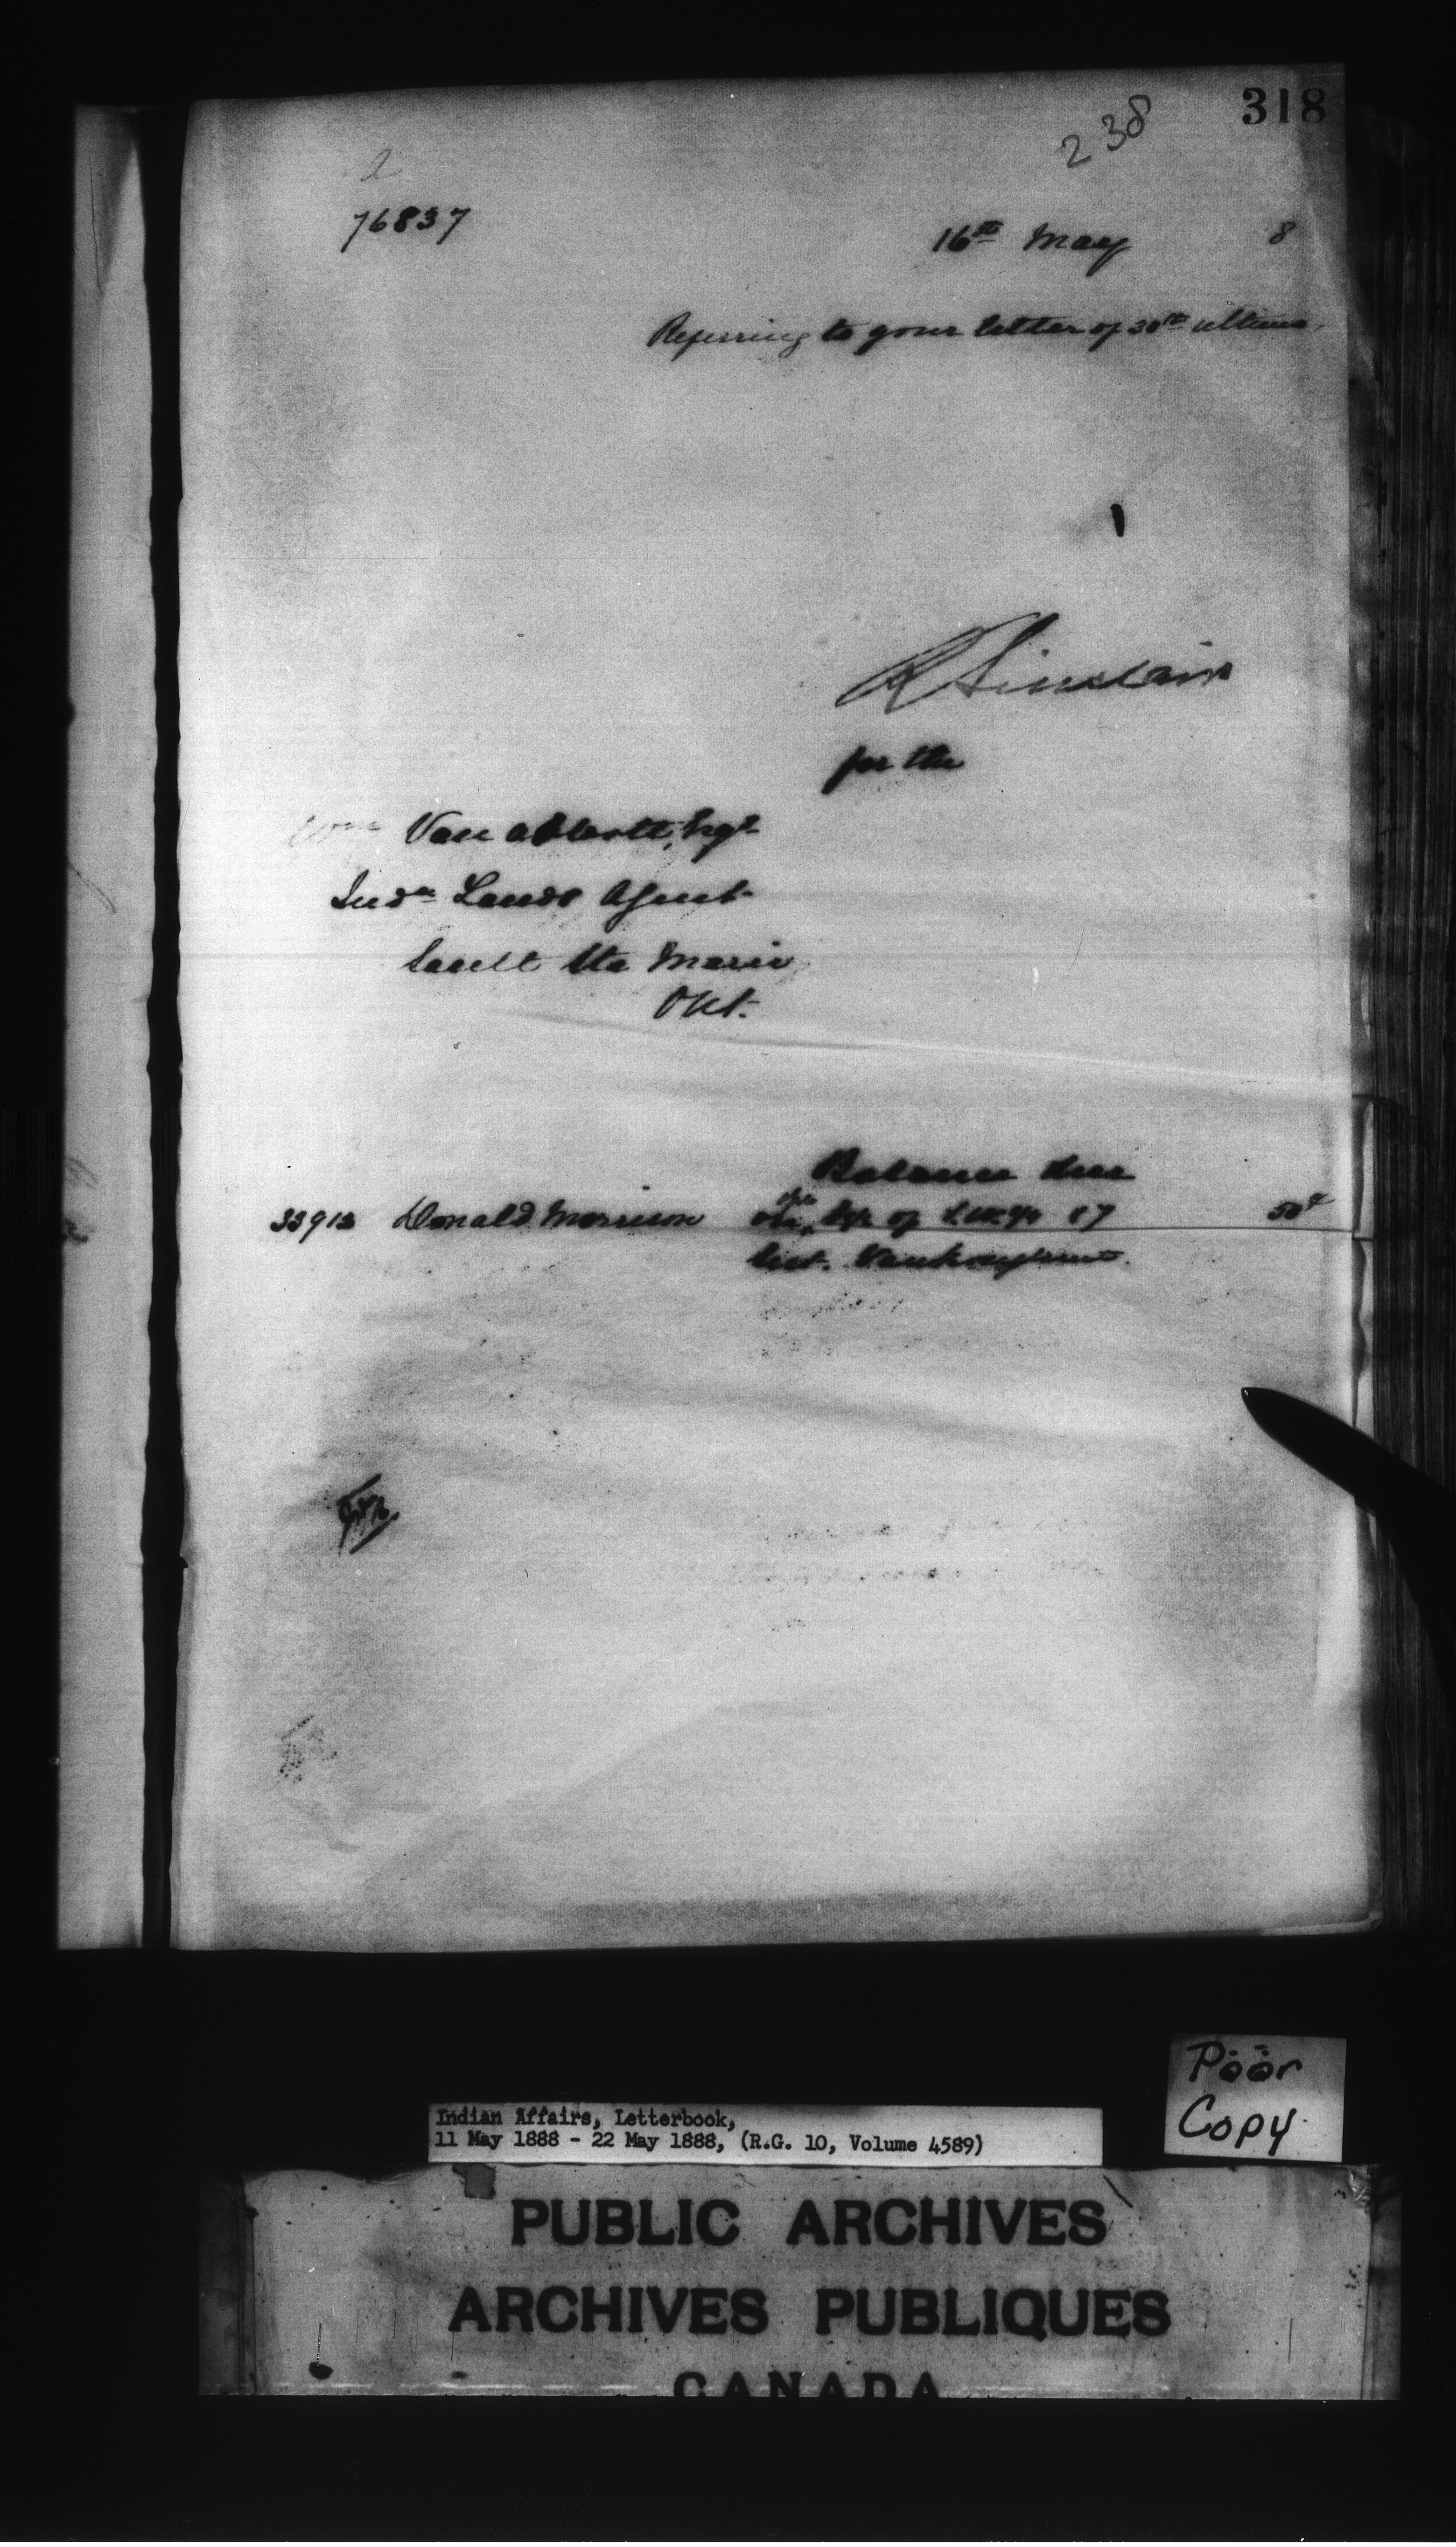 318
238
76837
16th May 8
Referring to your letter of 30th ultimo,
R Sinclair
for the
Wm Van Abbott, Esqr
Indn Lands Agent
Sault Ste Marie
Ont.
Balance due
33912 Donald Morrison of 17 50¢
Poor
Copy
Indian Affairs, Letterbook,
11 May 1888 - 22 May 1888, (R.G. 10, Volume 4589)
PUBLIC ARCHIVES
ARCHIVES PUBLIQUES
CANADA